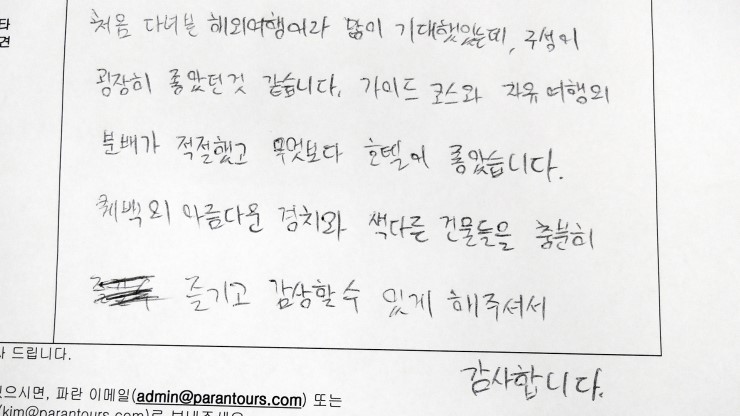 타
견
처음 다녀본 해외여행이라 많이 기대했었는데, 구성이
굉장히 좋았던것 같습니다. 가이드 코스와 자유 여행의
분배가 적절했고 무엇보다 호텔이 좋았습니다.
퀘백의 아름다운 경치와 색다른 건물들을 충분히
즐기고 감상할 수 있게 해주셔서
감사합니다.
사 드립니다.
있으시면, 파란 이메일(admin@parantours.com) 또는
(kim@parantours.com)로 보내주세요